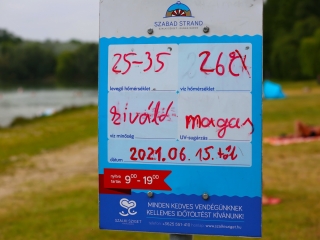 SZABAD STRAND
25-35 26°C
levegő hőmérséklet víz hőmérséklet
kiváló magas
víz minőség UV-sugárzás
dátum 2021.06.15.től
nyitva tartás 9⁰⁰ - 19⁰⁰
MINDEN KEDVES VENDÉGÜNKNEK
KELLEMES IDŐTÖLTÉST KÍVÁNUNK!